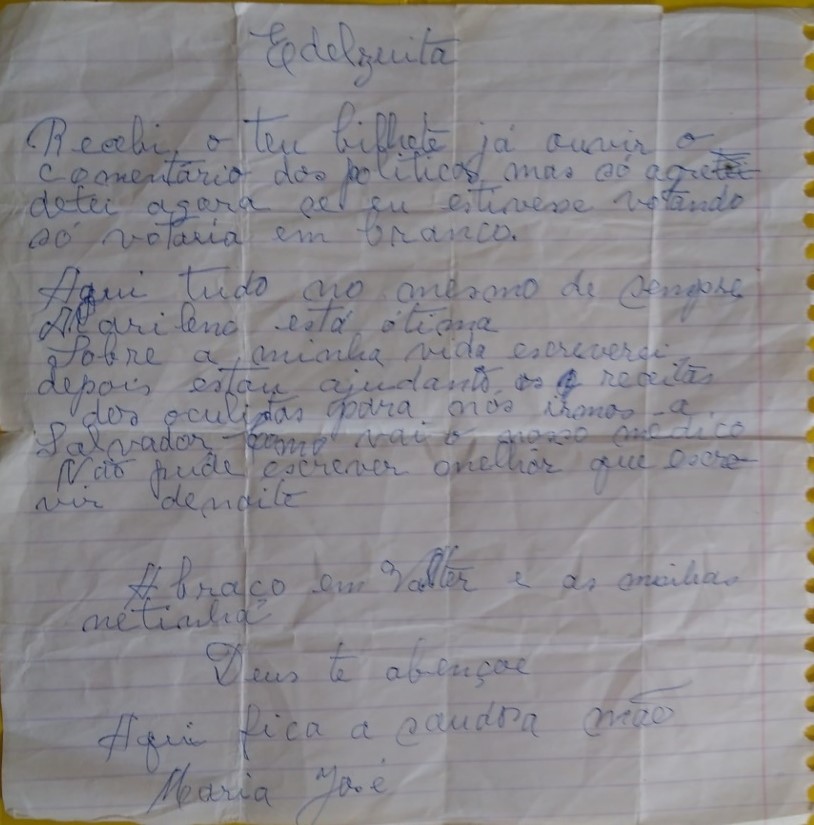 Edelzuita
Recebi o teu bilhete já ouvir o
comentário dos politicos mas só acre
detei agora se eu estivesse votando
só votaria em branco.
Aqui tudo no mesmo de sempre
Marileno está ótima
Sobre a minha vida escreverei
depois estau ajudanto os receitas
dos oculistas para nós irmos a
Salvador como vai o nosso medico
Não pude escrever melhor que escre
vir denoite
Abraço em Valter e as minhas
netinha
Deus te abençoe
Aqui fica a saudosa mão
Maria José